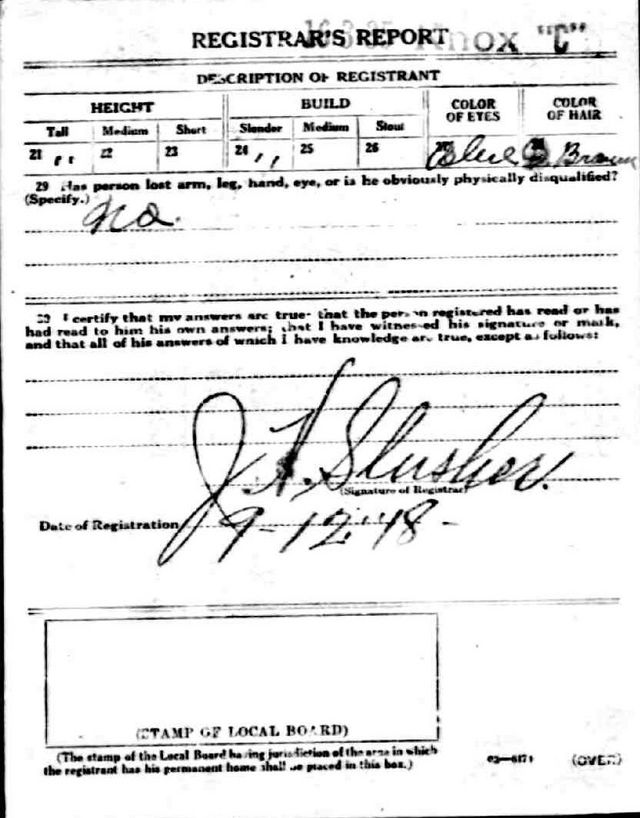 REGISTRAR'S REPORT Knox "C"
DESCRIPTION OF REGISTRANT
HEIGHT BUILD COLOR OF EYES COLOR OF HAIR
Tall Medium Short Slender Medium Stout
21 ,, 22 23 24 ,, 25 26 Blue Brown
29 Has person lost arm, leg, hand, eye, or is he obviously physically disqualified?
(Specify.) no.
30 I certify that my answers are true; that the person registered has read or has
had read to him his own answers; that I have witnessed his signature or mark,
and that all of his answers of which I have knowledge are true, except as follows:
Slusher.
(Signature of Registrar)
Date of Registration 9-12-18-
(STAMP OF LOCAL BOARD)
(The stamp of the Local Board having jurisdiction of the area in which
the registrant has his permanent home shall be placed in this box.)
03—6171 (OVER)